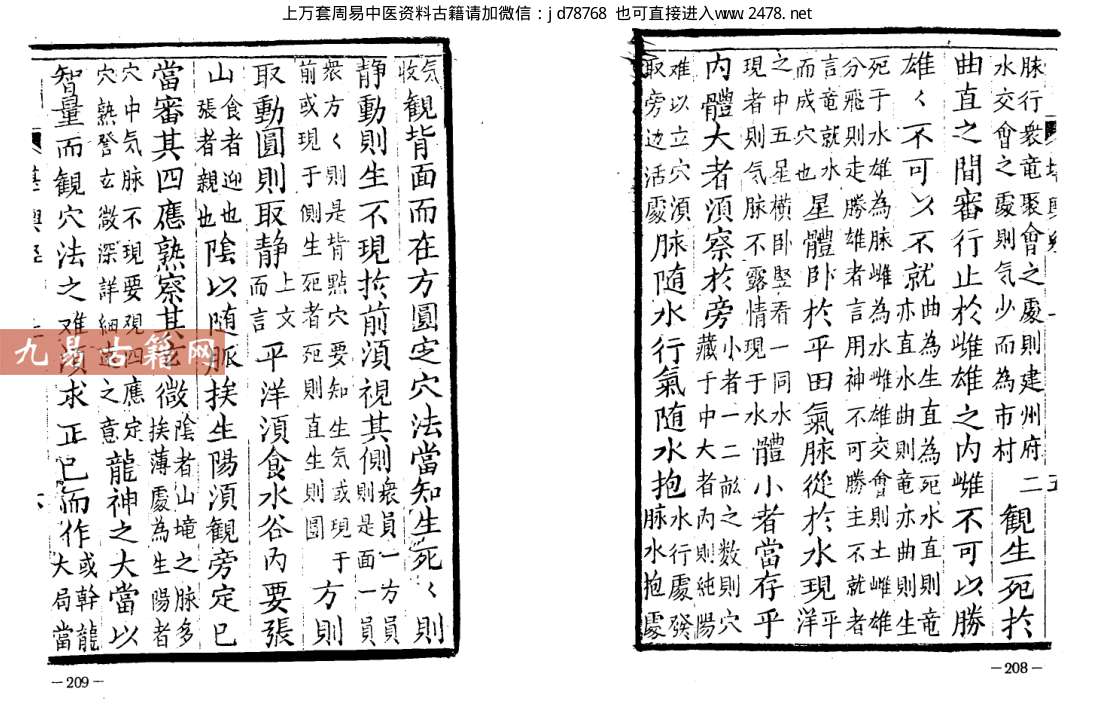 上万套周易中医资料古籍请加微信：jd78768 也可直接进入www.2478.net
脉行衆竜聚會之處則建州府二
水交會之處則气少而為市村
観生死扵
曲直之間審行止於雌雄之内雌不可以勝
雄〱不可以不就
曲為生直為死水直則竜
亦直水曲則竜亦曲則生
死于水雄為脉雌為水雌雄交會則土雌雄
分飛則走勝雄者言用神不可勝主不就者
言竜就水
而成穴也
星體卧扵平田氣脉從扵水現
平
洋
之中五星横卧竪看一同水
現者則气脉不露情現于水
體小者當存乎
内體大者湏察扵旁
小者一二畝之数則穴
藏于中大者内則純陽
难以立穴湏
取旁边活處
脉随水行氣随水抱
水行處發
脉水抱處
－208－
气
收
観背面而在方圓定穴法當知生死〱則
静動則生不現扵前湏視其側
衆員一方員
則是面一員
衆方〱則是背點穴要知生气或現于
前或現于側生死者死則直生則圓
方則
取動圓則取静
上文
而言
平洋湏食水谷内要張
山
食者迎也
張者親也
陰以随脈挨生陽湏観旁定已
當審其四應熟察其玄微
陰者山竜之脉多
挨薄處為生陽者
穴中气脉不現要覌四應定
穴熟詧玄微深詳細造之意
龍神之大當以
智量而観穴法之难湏求正已而作
或幹龍
大局當
－209－
九易古籍网